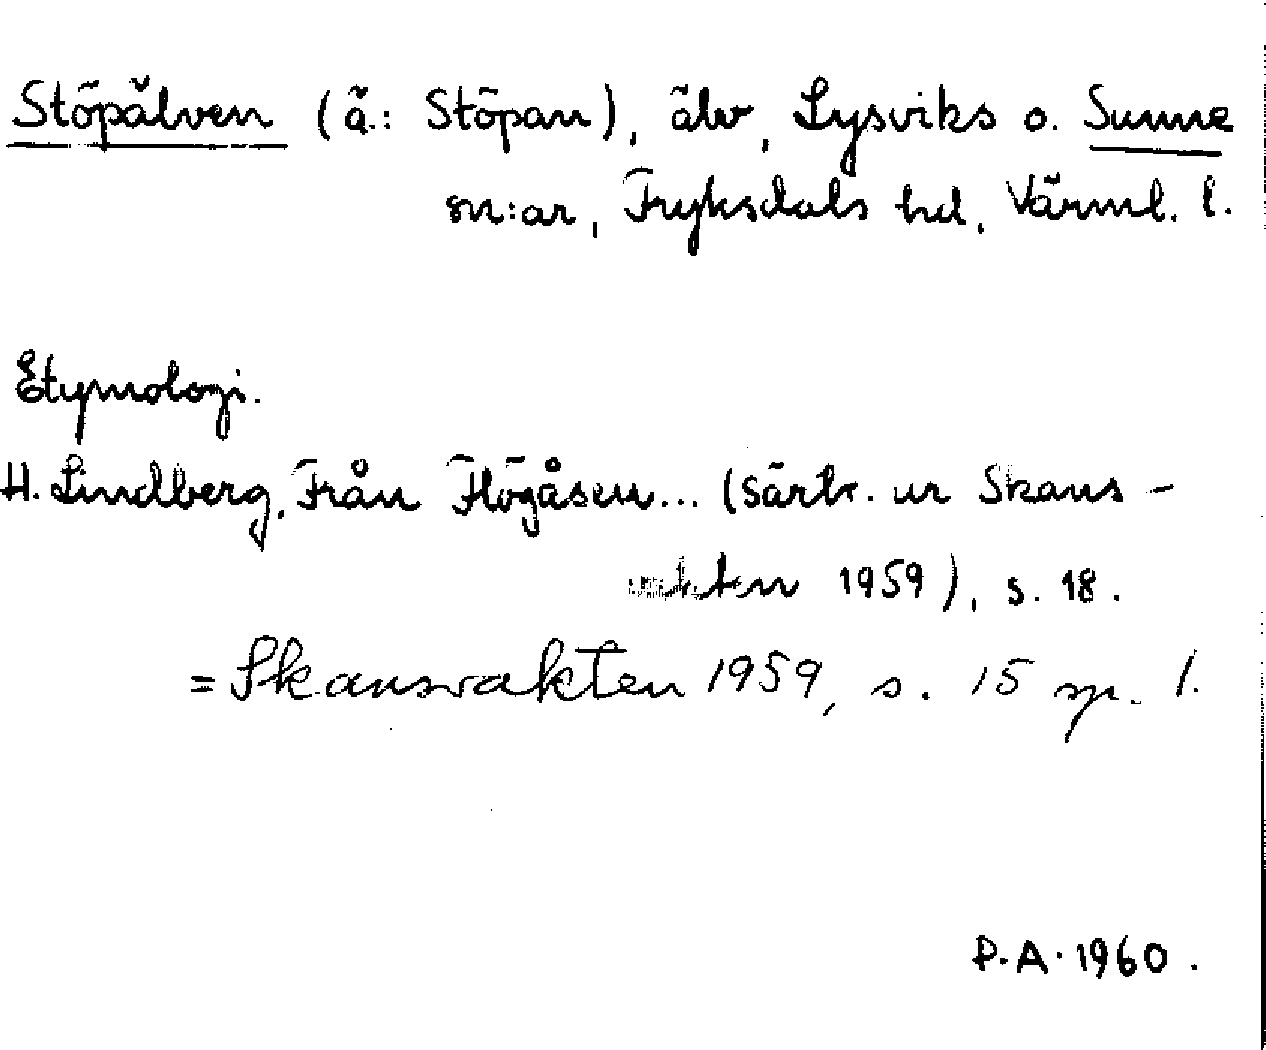 Stöpälven (ä.: Stöpan), älv, Lysviks o. Sunne
sn:ar, Fryksdals hd, Värml. l.
Etymologi.
H. Lindberg, Från Högåsen... (särtr. ur Skans-
vakten 1959), s. 18.
= Skansvakten 1959, s. 15 sp. 1.
P.A. 1960.